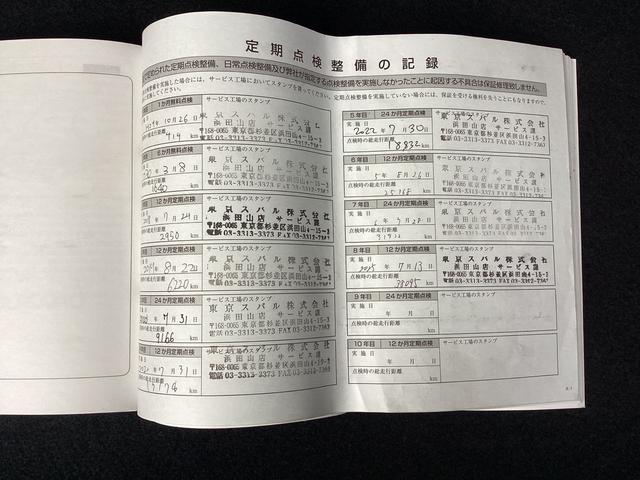 定期点検整備の記録
められた定期点検整備、日常点検整備及び弊社が指定する点検整備を実施しなかったことに起因する不具合は保証修理致しません。
1か月無料点検
サービス工場のスタンプ
10月26日
東京スバル株式会社
浜田山店 サービス課
〒168-0065 東京都杉並区浜田山4-15-3
電話03-3313-3373 FAX03-3312-7363
km
6か月無料点検
サービス工場のスタンプ
30年3月8日
東京スバル株式会社
浜田山店 サービス課
〒168-0065 東京都杉並区浜田山4-15-3
電話03-3313-3373
km
12か月定期点検
サービス工場のスタンプ
年7月24日
東京スバル株式会社
浜田山店 サービス課
〒168-0065 東京都杉並区浜田山4-15-3
電話03-3313-3373
2950 km
12か月定期点検
サービス工場のスタンプ
8月22日
東京スバル株式会社
浜田山店 サービス課
〒168-0065 東京都杉並区浜田山4-15-3
電話03-3313-3373
6220 km
24か月定期点検
サービス工場のスタンプ
年7月31日
東京スバル株式会社
浜田山店 サービス課
〒168-0065 東京都杉並区浜田山4-15-3
電話03-3313-3373
9166 km
12か月定期点検
サービス工場のスタンプ
年7月31日
東京スバル株式会社
浜田山店 サービス課
〒168-0065 東京都杉並区浜田山4-15-3
電話03-3313-3373
km
5年目 24か月定期点検
サービス工場のスタンプ
実施日
2022年7月30日
点検時の総走行距離
18832 km
東京スバル株式会社
浜田山店 サービス課
〒168-0065 東京都杉並区浜田山4-15-3
電話03-3313-3373 FAX 03-3312-7363
6年目 12か月定期点検
サービス工場のスタンプ
実施日
5年8月26日
点検時の総走行距離
25168 km
東京スバル株式会社
浜田山店 サービス課
〒168-0065 東京都杉並区浜田山4-15-3
電話03-3313-3373
7年目 24か月定期点検
サービス工場のスタンプ
実施日
点検時の総走行距離
km
東京スバル株式会社
浜田山店 サービス課
〒168-0065 東京都杉並区浜田山4-15-3
電話03-3313-3373
8年目 12か月定期点検
サービス工場のスタンプ
実施日
2025年7月13日
点検時の総走行距離
38095 km
東京スバル株式会社
浜田山店 サービス課
〒168-0065 東京都杉並区浜田山4-15-3
電話03-3313-3373
9年目 24か月定期点検
サービス工場のスタンプ
実施日
年 月 日
点検時の総走行距離
km
10年目 12か月定期点検
サービス工場のスタンプ
実施日
年 月 日
点検時の総走行距離
km